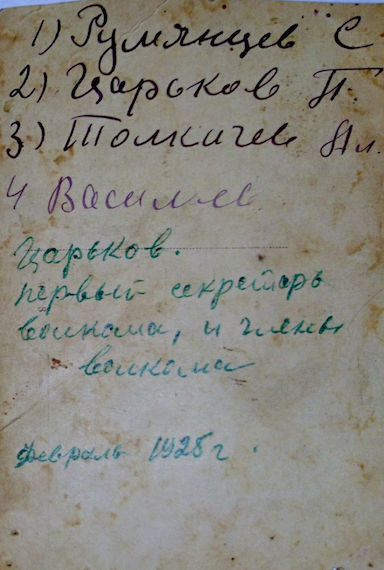 1) Румянцев С
2) Царьков П.
3) Толкичев Пл.
4 Васильев
Царьков.
первый секретарь
волкома, и члены
волкома
Февраль 1925 г.